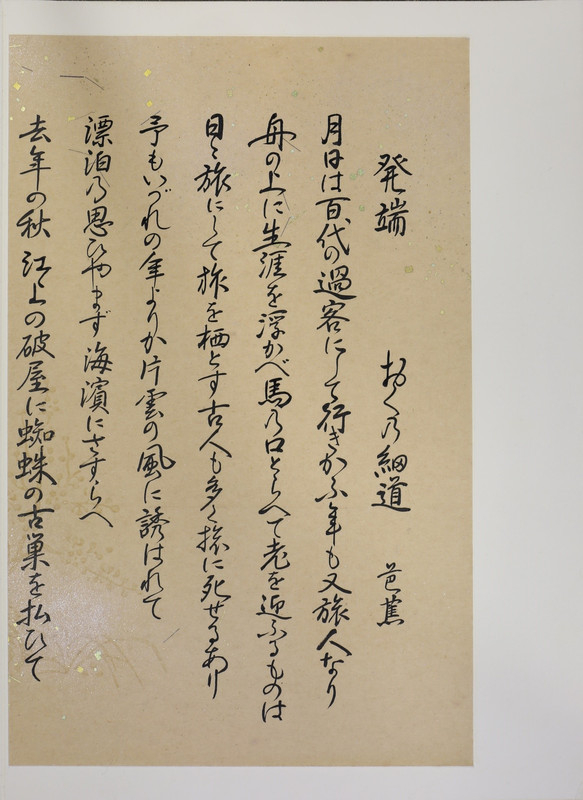 発端　おくの細道　芭蕉
月日は百代の過客にして行きかふ年も又旅人なり
舟の上に生涯を浮かべ馬の口とらへて老を迎ふるものは
日々旅にして旅を栖とす古人も多く旅に死せるあり
予もいづれの年よりか片雲の風に誘はれて
漂泊の思ひやまず海濱にさすらへ
去年の秋江上の破屋に蜘蛛の古巣を払ひて